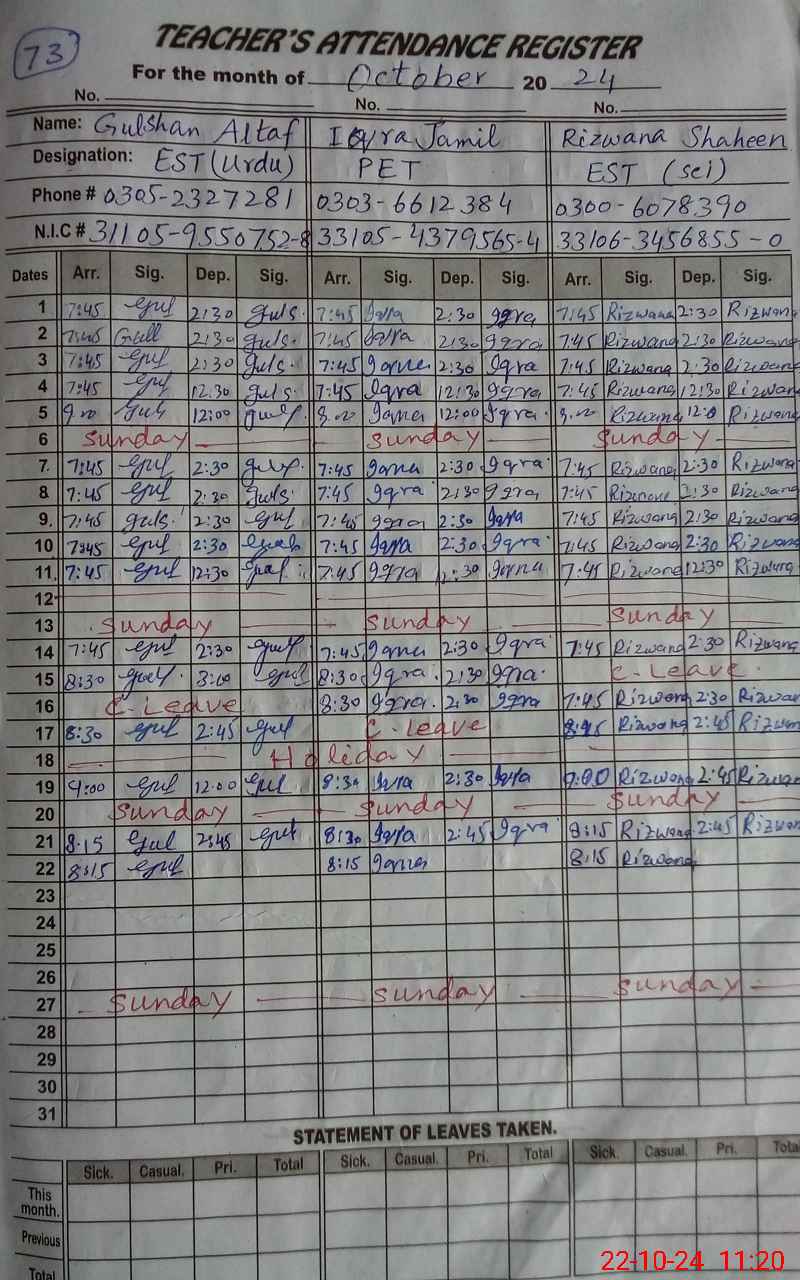 73
TEACHER'S ATTENDANCE REGISTER
For the month of October 20 24
No. No. No.
Name: Gulshan Altaf Iqra Jamil Rizwana Shaheen
Designation: EST (Urdu) PET EST (sci)
Phone # 0305-2327281 0303-6612384 0300-6078390
N.I.C # 31105-9550752-8 33105-4379565-4 33106-3456855-0
Dates Arr. Sig. Dep. Sig. Arr. Sig. Dep. Sig. Arr. Sig. Dep. Sig.
1 7:45 Gul 2:30 Guls 7:45 Iqra 2:30 Iqra 7:45 Rizwana 2:30 Rizwan
2 7:45 Gull 2:30 Guls. 7:45 Iqra 2:30 Iqra 7:45 Rizwana 2:30 Rizwana
3 7:45 Gul 2:30 Guls. 7:45 Iqra 2:30 Iqra 7:45 Rizwana 2:30 Rizwana
4 7:45 Gul 12:30 Guls. 7:45 Iqra 12:30 Iqra 7:45 Rizwana 12:30 Rizwana
5 Gul 12:00 8:00 Iqra 12:00 Iqra 8:00 Rizwana 12:0 Rizwana
6 Sunday Sunday Sunday
7. 7:45 Gul 2:30 Gul 7:45 Iqra 2:30 Iqra 7:45 Rizwana 2:30 Rizwana
8 7:45 Gul 2:30 Guls 7:45 Iqra 2:30 Iqra 7:45 2:30 Rizwana
9. 7:45 Guls. 2:30 Gul 7:45 Iqra 2:30 Iqra 7:45 Rizwana 2:30 Rizwana
10 7:45 Gul 2:30 7:45 Iqra 2:30 Iqra 7:45 Rizwana 2:30 Rizwana
11. 7:45 Gul 12:30 Gul 7:45 Iqra 12:30 Iqra 7:45 Rizwana 12:30 Rizwana
12
13 Sunday Sunday Sunday
14 7:45 Gul 2:30 Gul 7:45 Iqra 2:30 Iqra 7:45 Rizwana 2:30 Rizwana
15 8:30 Gul 3:00 Gul 8:30 Iqra. 2:30 Iqra. C-Leave
16 C-Leave 8:30 Iqra. 2:30 Iqra 7:45 Rizwana 2:30 Rizwan
17 8:30 Gul 2:45 Gul C-Leave Rizwana 2:45 Rizwan
18 Holiday
19 9:00 Gul 12:00 Gul 8:30 Iqra 2:30 Iqra 9:00 Rizwana 2:45 Rizwan
20 Sunday Sunday Sunday
21 8:15 Gul 2:45 Gul 8:30 Iqra 2:45 Iqra 8:15 Rizwana 2:45 Rizwan
22 8:15 Gul 8:15 Iqra 8:15 Rizwana
23
24
25
26
27 Sunday Sunday Sunday
28
29
30
31
STATEMENT OF LEAVES TAKEN.
Sick. Casual. Pri. Total Sick. Casual. Pri. Total Sick. Casual. Pri. Total
This month.
Previous
Total
22-10-24 11:20